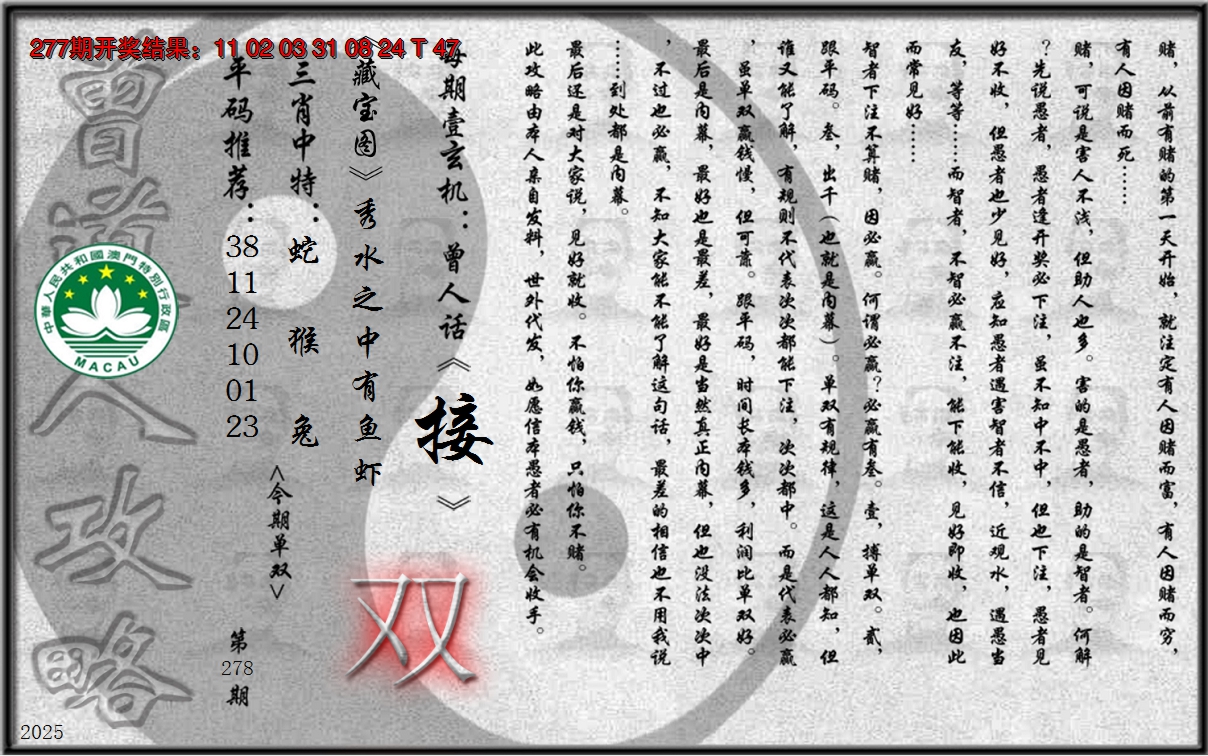 277期开奖结果：11 02 03 31 08 24 T 47
赌，从前有赌的第一天开始，就注定有人因赌而富，有人因赌而穷，
有人因赌而死……
赌，可说是害人不浅，但助人也多。害的是愚者，助的是智者。何解
？先说愚者，愚者逢开奖必下注，虽不知中不中，但也下注，愚者见
好不收，但愚者也少见好，应知愚者遇害智者不信，近观水，遇愚当
友，等等……而智者，不智必赢不注，能下能收，见好即收，也因此
而常见好……
智者下注不算赌，因必赢。何谓必赢？必赢有叁。壹，搏单双。贰，
跟平码。叁，出千（也就是内幕）。单双有规律，这是人人都知，但
谁又能了解，有规则不代表次次都能下注，次次都中。而是代表必赢
，虽单双赢钱慢，但可靠。跟平码，时间长本钱多，利润比单双好。
最后是内幕，最好也是最差，最好是当然真正内幕，但也没法次次中
，不过也必赢，不知大家能不能了解这句话，最差的相信也不用我说
……到处都是内幕。
最后还是对大家说，见好就收。不怕你赢钱，只怕你不赌。
此攻略由本人亲自发料，世外代发，如愿信本愚者必有机会收手。
每期壹玄机：曾人话《接》
《藏宝图》秀水之中有鱼虾
三肖中特：蛇 猴 兔
<今期单双>
双
平码推荐：38 11 24 10 01 23
第278期
曾道人攻略
中華人民共和國澳門特別行政區
MACAU
2025